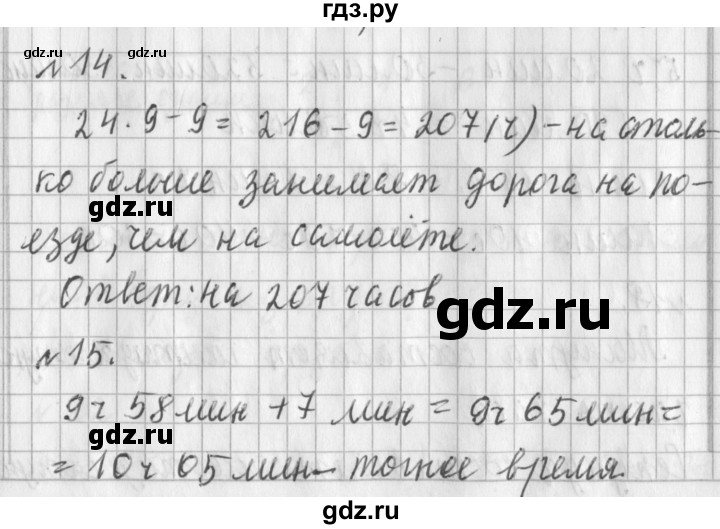 гдз.ру
gdz.ru gdz.ru gdz.ru
№14.
24·9-9=216-9=207(ч)-на столь-
ко больше занимает дорога на по-
gdz.ru
езде, чем на самолёте.
Ответ: на 207 часов
gdz.ru
№15.
9ч 58мин +7 мин = 9ч 65мин=
gdz.ru
= 10ч 05мин- точное время.
gdz.ru gdz.ru